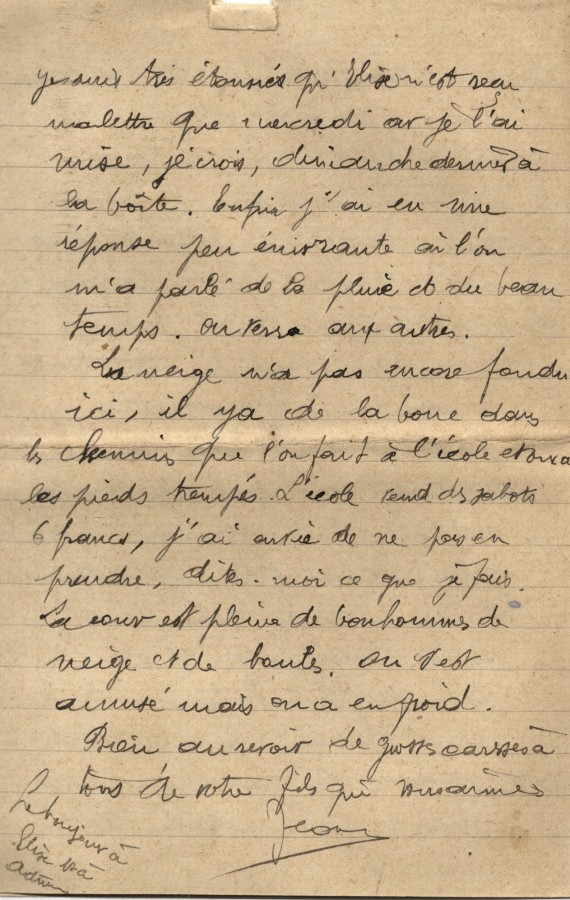 je suis très étonné qu'Elise n'est reçu
ma lettre que mercredi car je l'ai
mise, je crois, dimanche dernier à
la boîte. Enfin j'ai eu une
réponse peu énivrante où l'on
m'a parlé de la pluie et du beau
temps. On verra aux autres.
La neige n'a pas encore fondu
ici, il y a de la boue dans
les chemins que l'on fait à l'école et on a
les pieds trempés. L'école vend des sabots
6 francs, j'ai envie de ne pas en
prendre, dites-moi ce que je fais.
La cour est pleine de bonhommes de
neige et de boules. On s'est
amusé mais on a eu froid.
Bien au revoir de grosses caresses à
tous de votre fils qui vous aimes
Jean
Le bonjour à
Elise et à